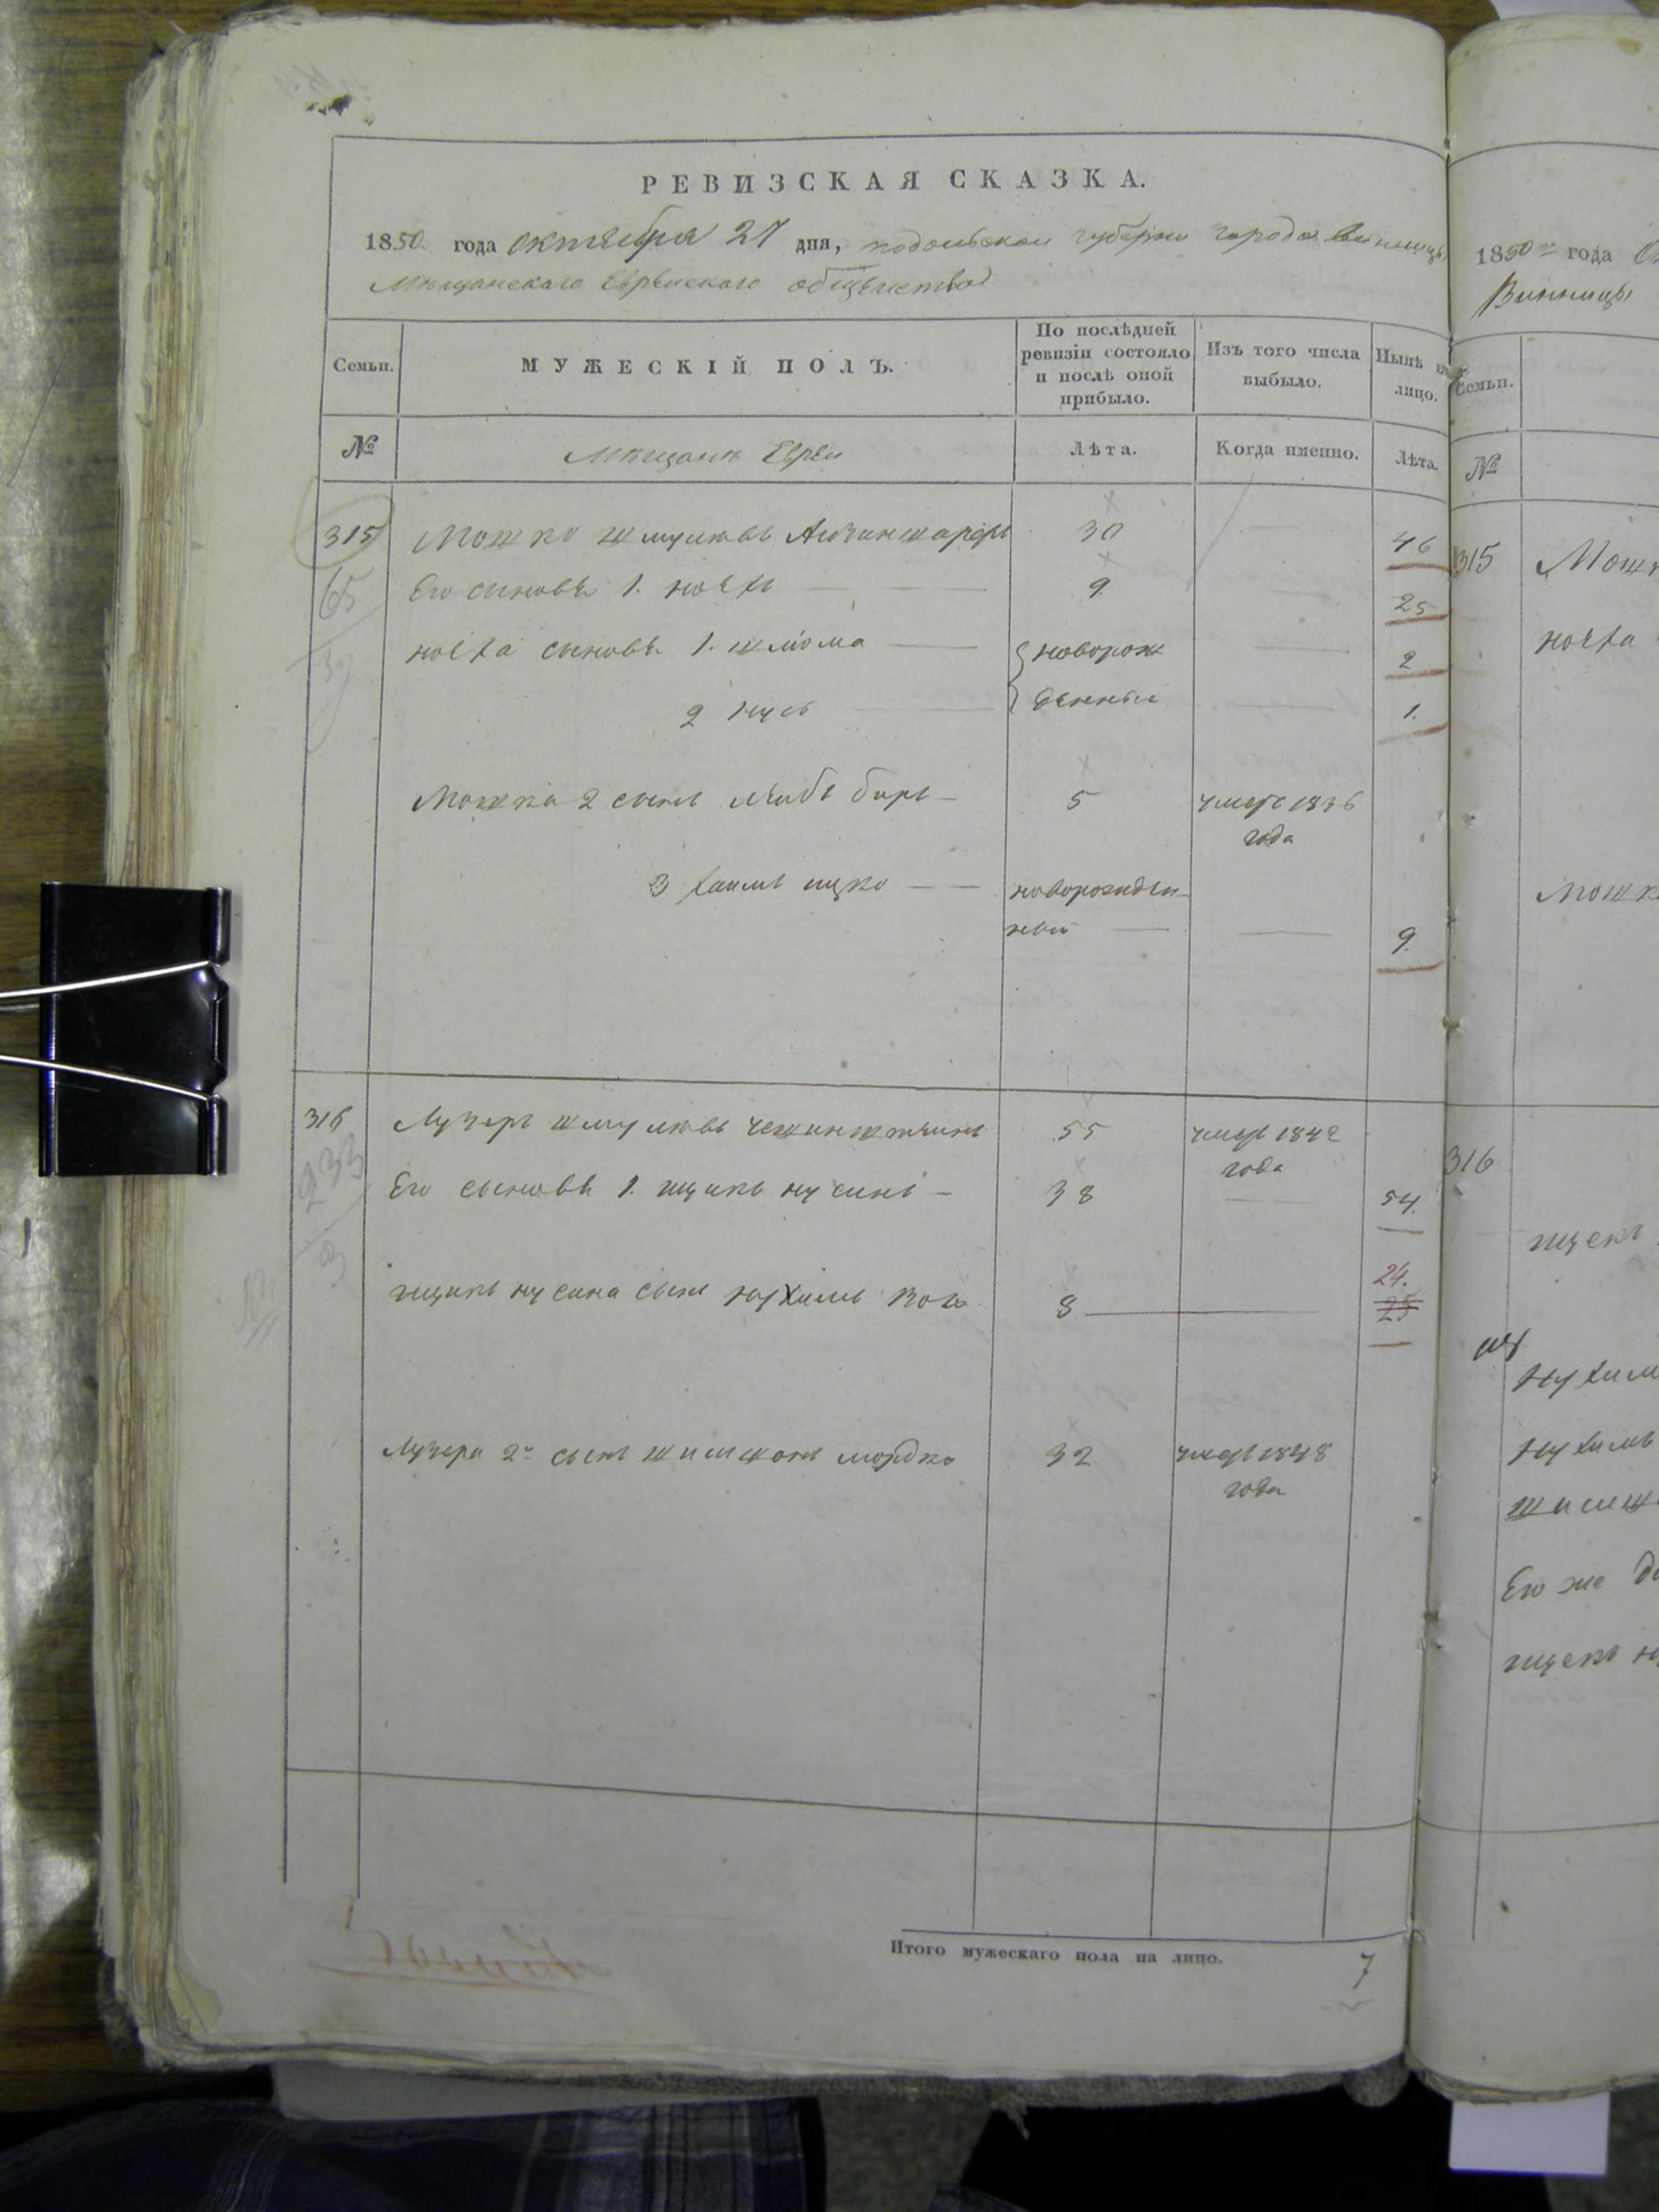 РЕВИЗСКАЯ СКАЗКА.
1850 года октября 27 дня, подольской губернии города Винницы
Мѣщанскаго Еврейскаго общества
Семьи. МУЖЕСКІЙ ПОЛЪ. По послѣдней ревизіи состояло и послѣ оной прибыло. Изъ того числа выбыло. Нынѣ на лицо.
№ Мѣщане Евреи Лѣта. Когда именно. Лѣта.
315 Мошко Шмулевъ 30 46
65 Его сыновья 1. 9 25
сыновья 1. шлома новорож 2
2 нусь денные 1.
Мошка 2 сынъ лейбъ беръ 5 умеръ 1836
года
3 хаимъ ицко новорожден
ный 9
316 Лузеръ шмулевъ 55 умеръ 1842
года
233 Его сыновья 1. ицикъ нусинъ 38 54.
3
24.
ицикъ нусина сынъ нухимъ 8 25
Лузера 2й сынъ шимшонъ мордко 32 умеръ 1848
года
Итого мужескаго пола на лицо. 7
1850го года
Винницы
Семьи.
№
315 Мошк
Мошк
316
ицекъ
Нухим
Нухимъ
шимш
Его же
ицекъ